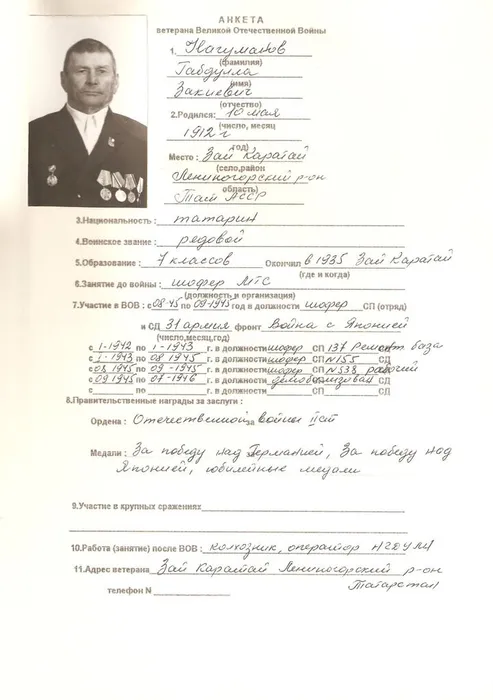 АНКЕТА
ветерана Великой Отечественной Войны
1. Нагуманов
(фамилия)
Габдулла
(имя)
Закиевич
(отчество)
2.Родился: 10 мая
(число, месяц
1912 г
год)
Место: Зай Каратай
(село,район
Лениногорский р-он
область)
Тат АССР
3.Национальность: татарин
4.Воинское звание: редовой
5.Образование: 7 классов Окончил в 1935 Зай Каратай
(где и когда)
6.Занятие до войны: шофер МТС
(должность и организация)
7.Участие в ВОВ: с 08-45 по 09-1945 год в должности шофер СП (отряд)
и СД 31 армия фронт Война с Японией
(число,месяц,год)
с 1-1942 по 1-1943 г. в должности шофер СП 137 Ремонт. база
с 1-1943 по 08 1945 г. в должности шофер СП N155 СД
с 08 1945 по 09-1945 г. в должности шофер СП N538 рабочий
с 09 1945 по 07-1946 г. в должности демобилизован СД
с по г. в должности СП СД
8.Правительственные награды за заслуги:
Ордена: Отечественной за войны II ст
Медали: За победу над Германией, За победу над
Японией, юбилейные медали
9.Участие в крупных сражениях
10.Работа (занятие) после ВОВ: колхозник, оператор НГДУ
11.Адрес ветерана Зай Каратай Лениногорский р-он
Татарстан
телефон N